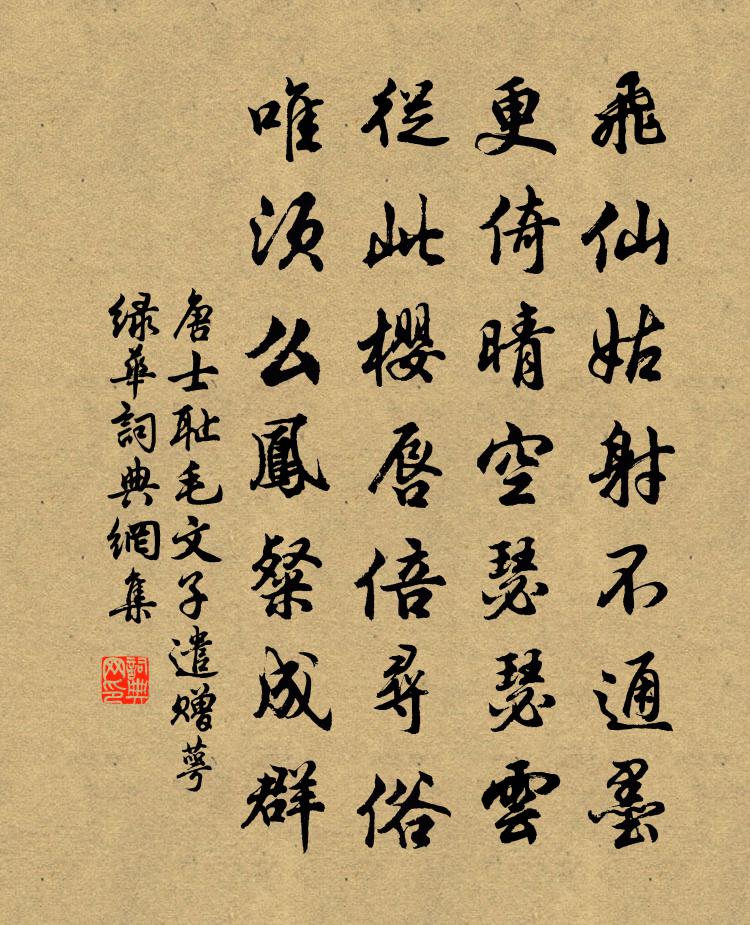 飛仙姑射不通墨
更倚晴空瑟瑟雲
從此櫻唇倍尋俗
唯須么鳳粲成群
唐士耻毛文子遣赠萼
绿華詞典網集
詞典網印